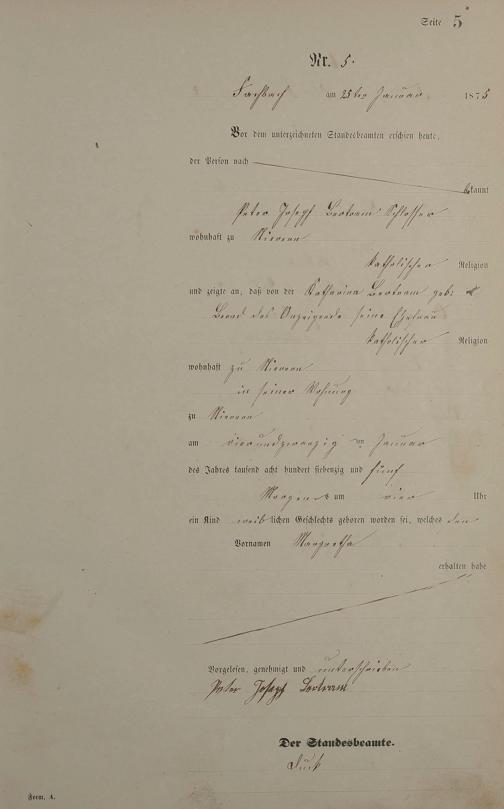 Seite 5
Nr. 5.
Fachbach am 25ten Januar 1875
Vor dem unterzeichneten Standesbeamten erschien heute,
der Person nach
kannt
Peter Joseph Bertram Schlosser
wohnhaft zu Nievern
katholischer Religion
und zeigte an, daß von der Katharina Bertram geb:
des Anzeigende seine Ehefrau
katholischer Religion
wohnhaft zu Nievern
in seiner Wohnung
zu Nievern
am vierundzwanzig ten Januar
des Jahres tausend acht hundert siebenzig und fünf
Morgens um vier Uhr
ein Kind weiblichen Geschlechts geboren worden sei, welches den
Vornamen Margretha
erhalten habe
Vorgelesen, genehmigt und unterschrieben
Peter Joseph Bertram
Der Standesbeamte.
Form. A.